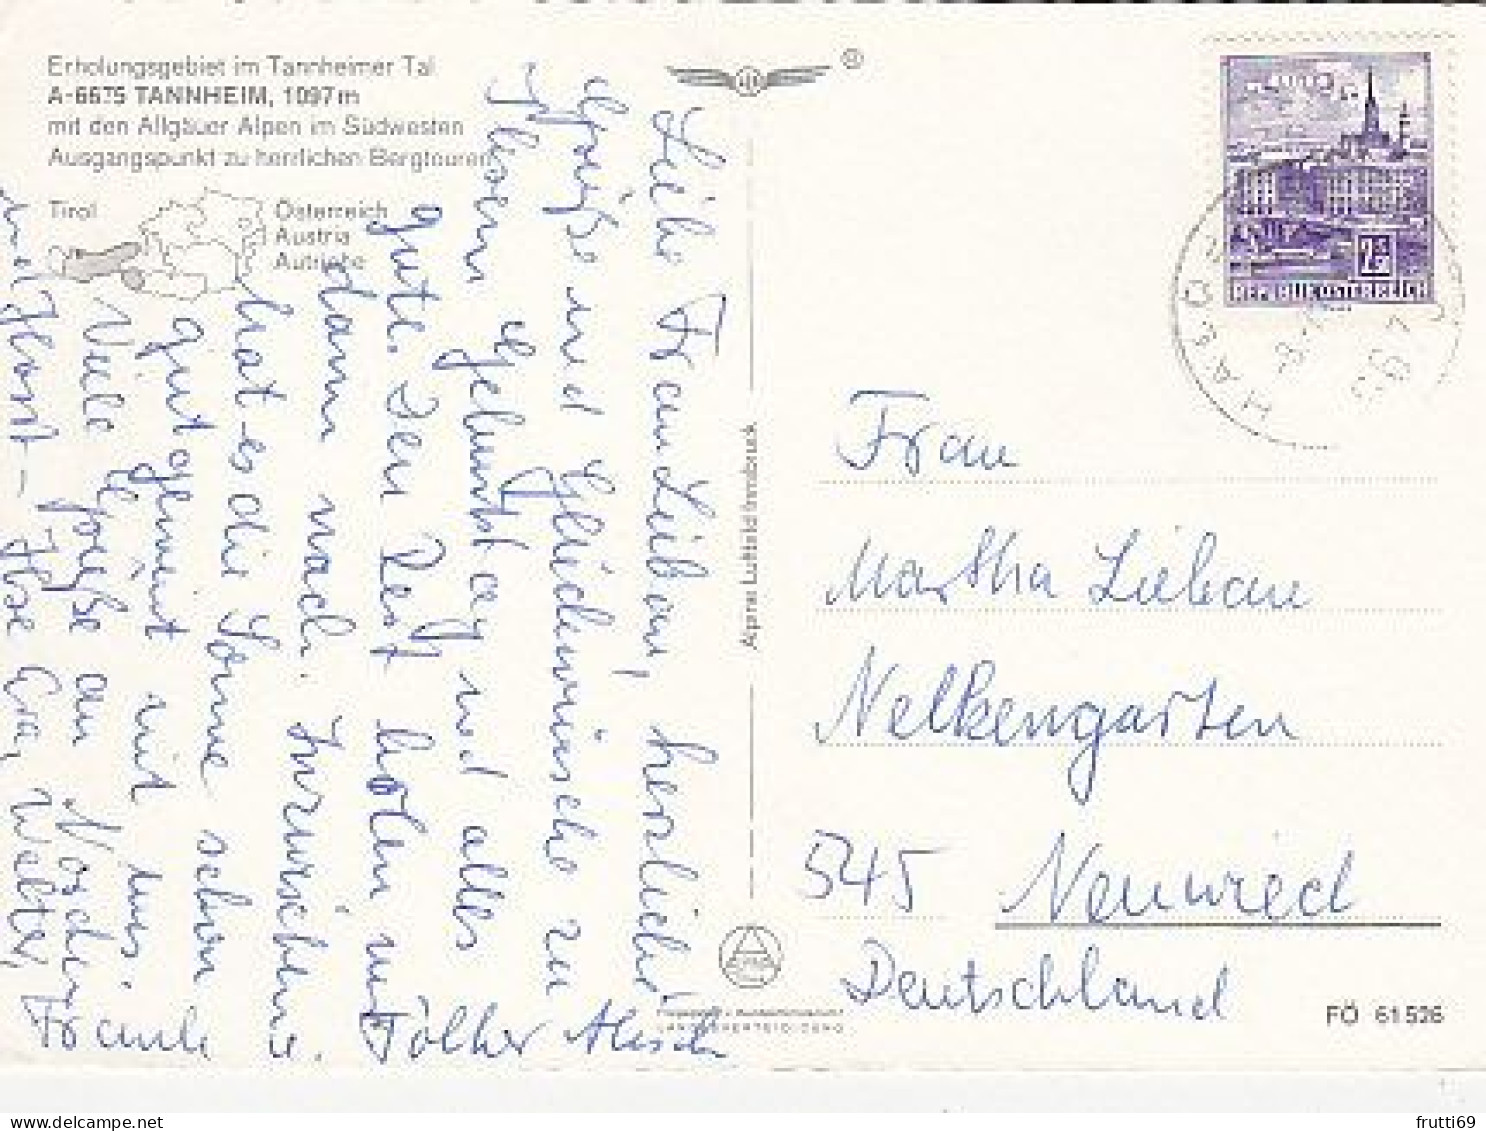 Erholungsgebiet im Tannheimer Tal
A-6675 TANNHEIM, 1097 m
mit den Allgäuer Alpen im Südwesten
Ausgangspunkt zu herrlichen Bergtouren
Tirol
Österreich
Austria
Autriche
Liebe Frau Liebau, herzliche
Grüße und Glückwünsche zu
Ihrem Geburtstag und alles
gute. Den Rest holen wir
dann nach. Inzwischen
hat es die Sonne schon
gut gemeint mit uns.
Viele Grüße an
Horst – Ilse
u.
Alpine Luftbild Innsbruck
LANDESVERTEIDIGUNG
REPUBLIK ÖSTERREICH
Frau
Martha Liebau
Nelkengarten
545 Neuwied
Deutschland
FÖ 61526
frutti69